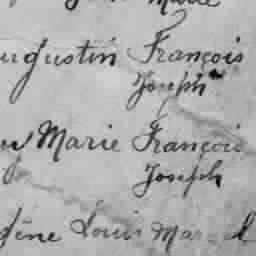 Marie
ugustin François
Joseph
Marie François
Joseph
gène Louis Marcel